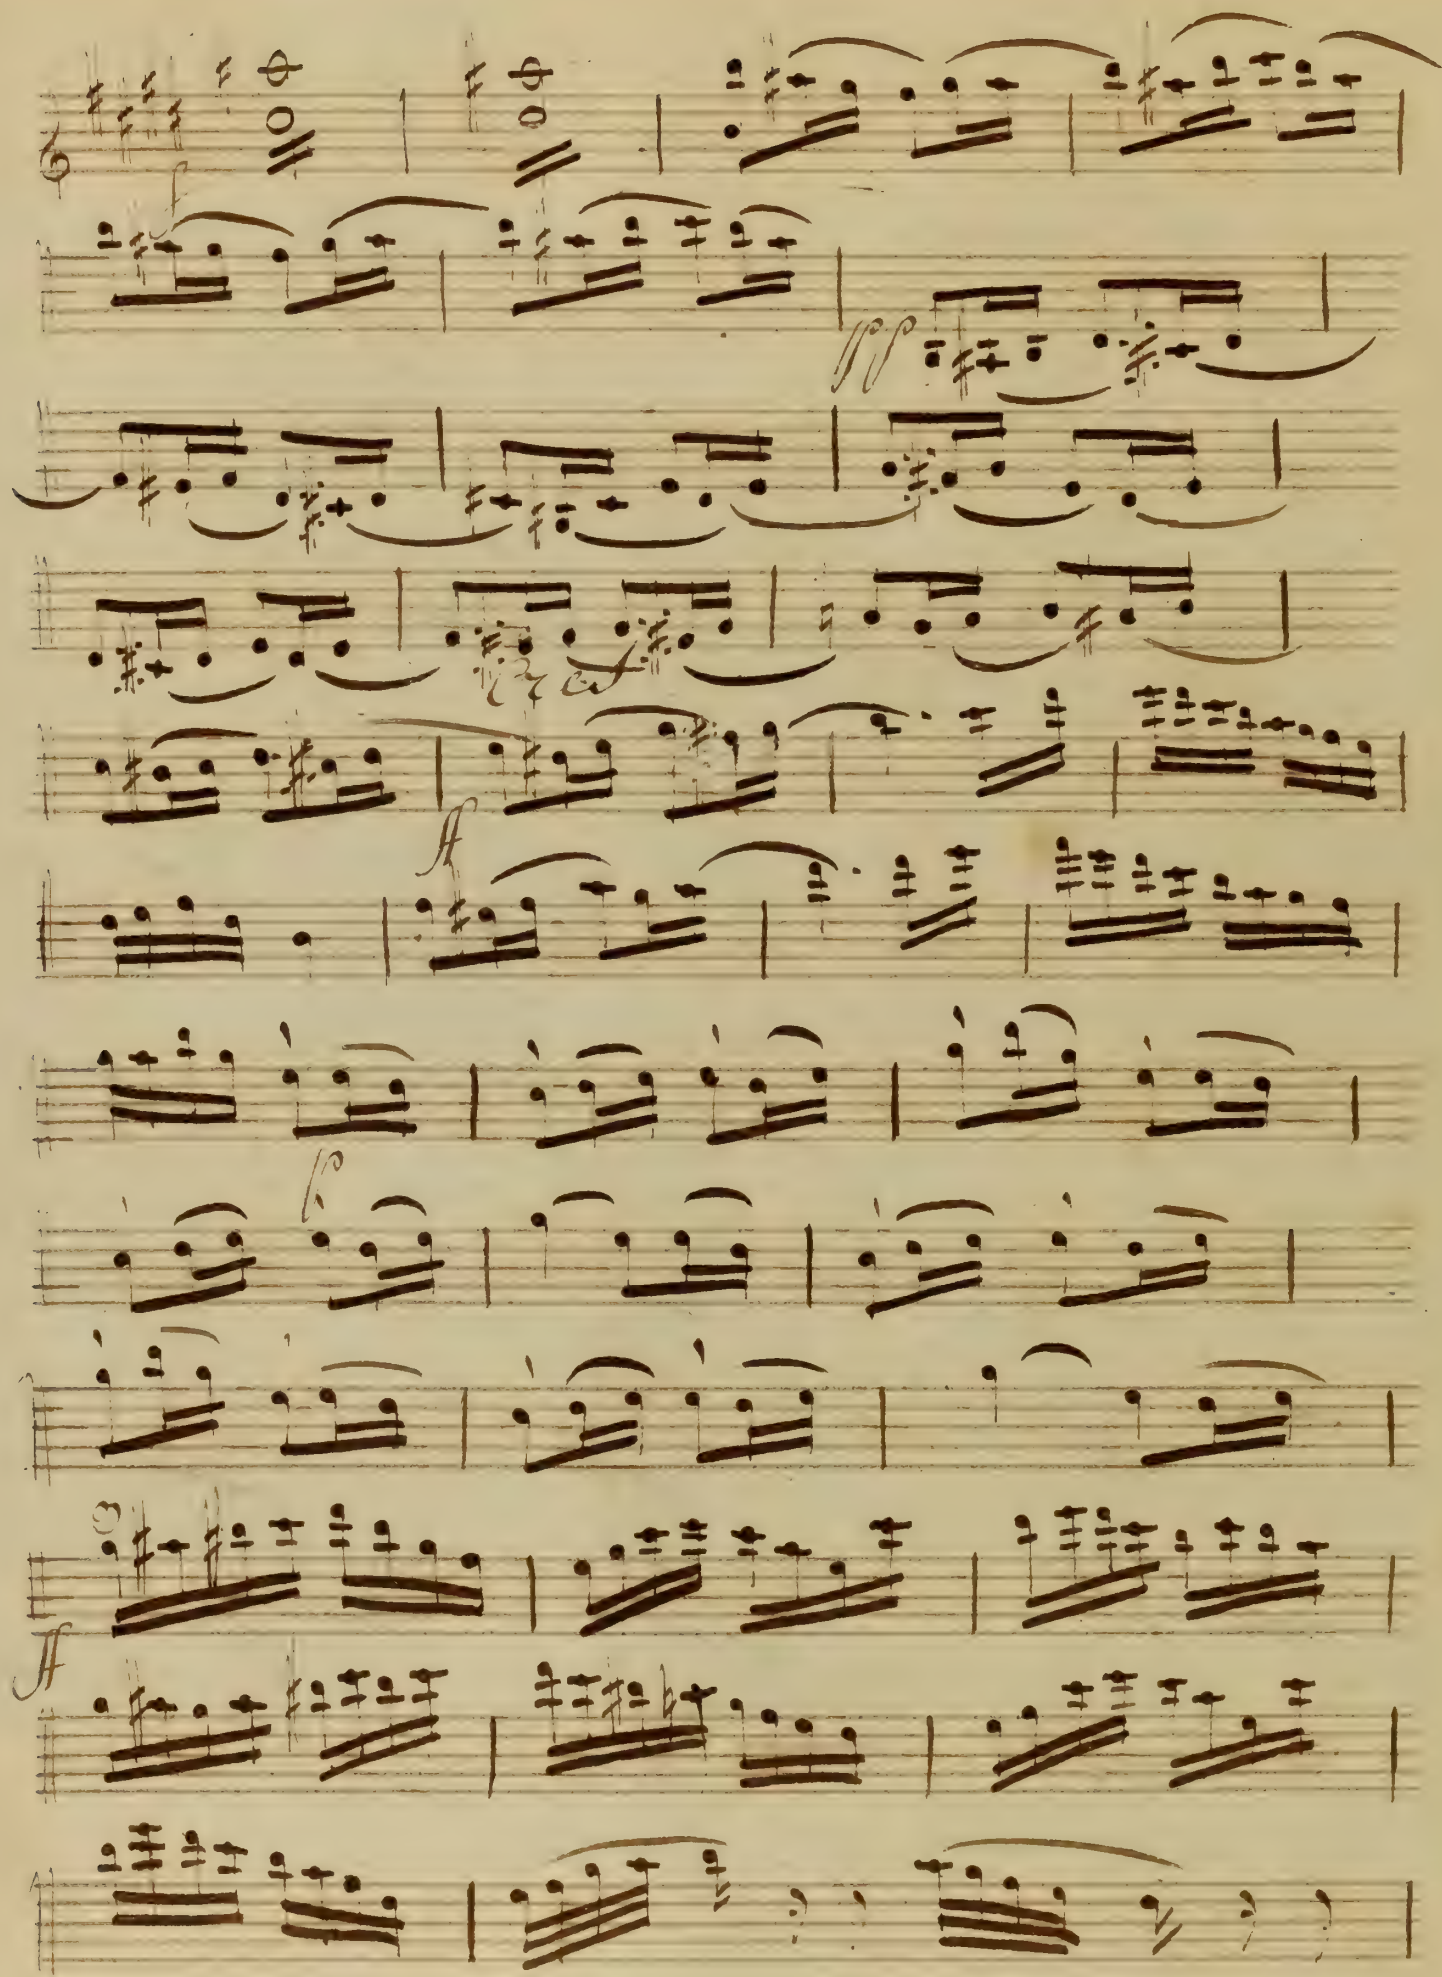 f
pp
cres
ff
p
ff